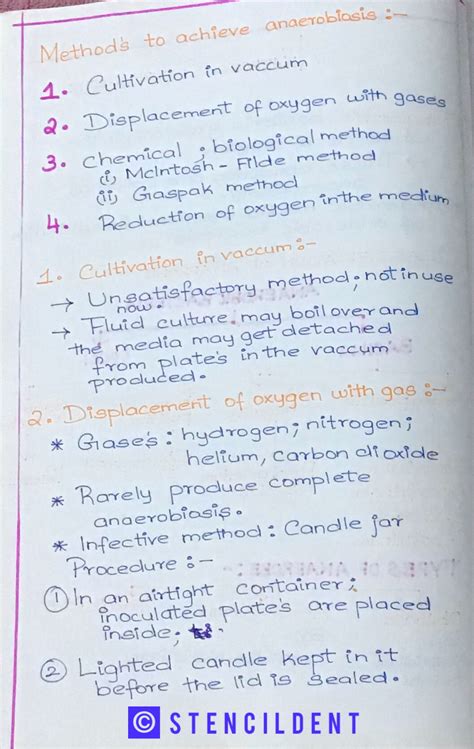 Method's to achieve anaerobiosis :-
1. Cultivation in vaccum
2. Displacement of oxygen with gases
3. chemical ; biological method
(i) McIntosh - Filde method
(ii) Gaspak method
4. Reduction of oxygen in the medium
1. Cultivation in vaccum :-
→ Unsatisfactory method; not in use
now.
→ Fluid culture may boil over and
the media may get detached
from plate's in the vaccum
produced.
2. Displacement of oxygen with gas :-
* Gase's : hydrogen; nitrogen;
helium, carbon dioxide
* Rarely produce complete
anaerobiasis.
* Infective method : Candle jar
Procedure :-
① In an airtight container;
inoculated plate's are placed
inside;
② Lighted candle kept in it
before the lid is sealed.
© STENCILDENT